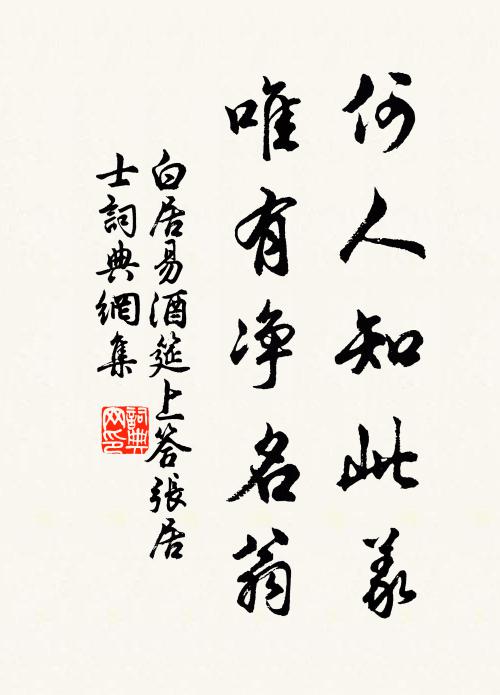 何人知此義
唯有净名翁
白居易酒筵上答張居
士詞典網集
詞典
网印